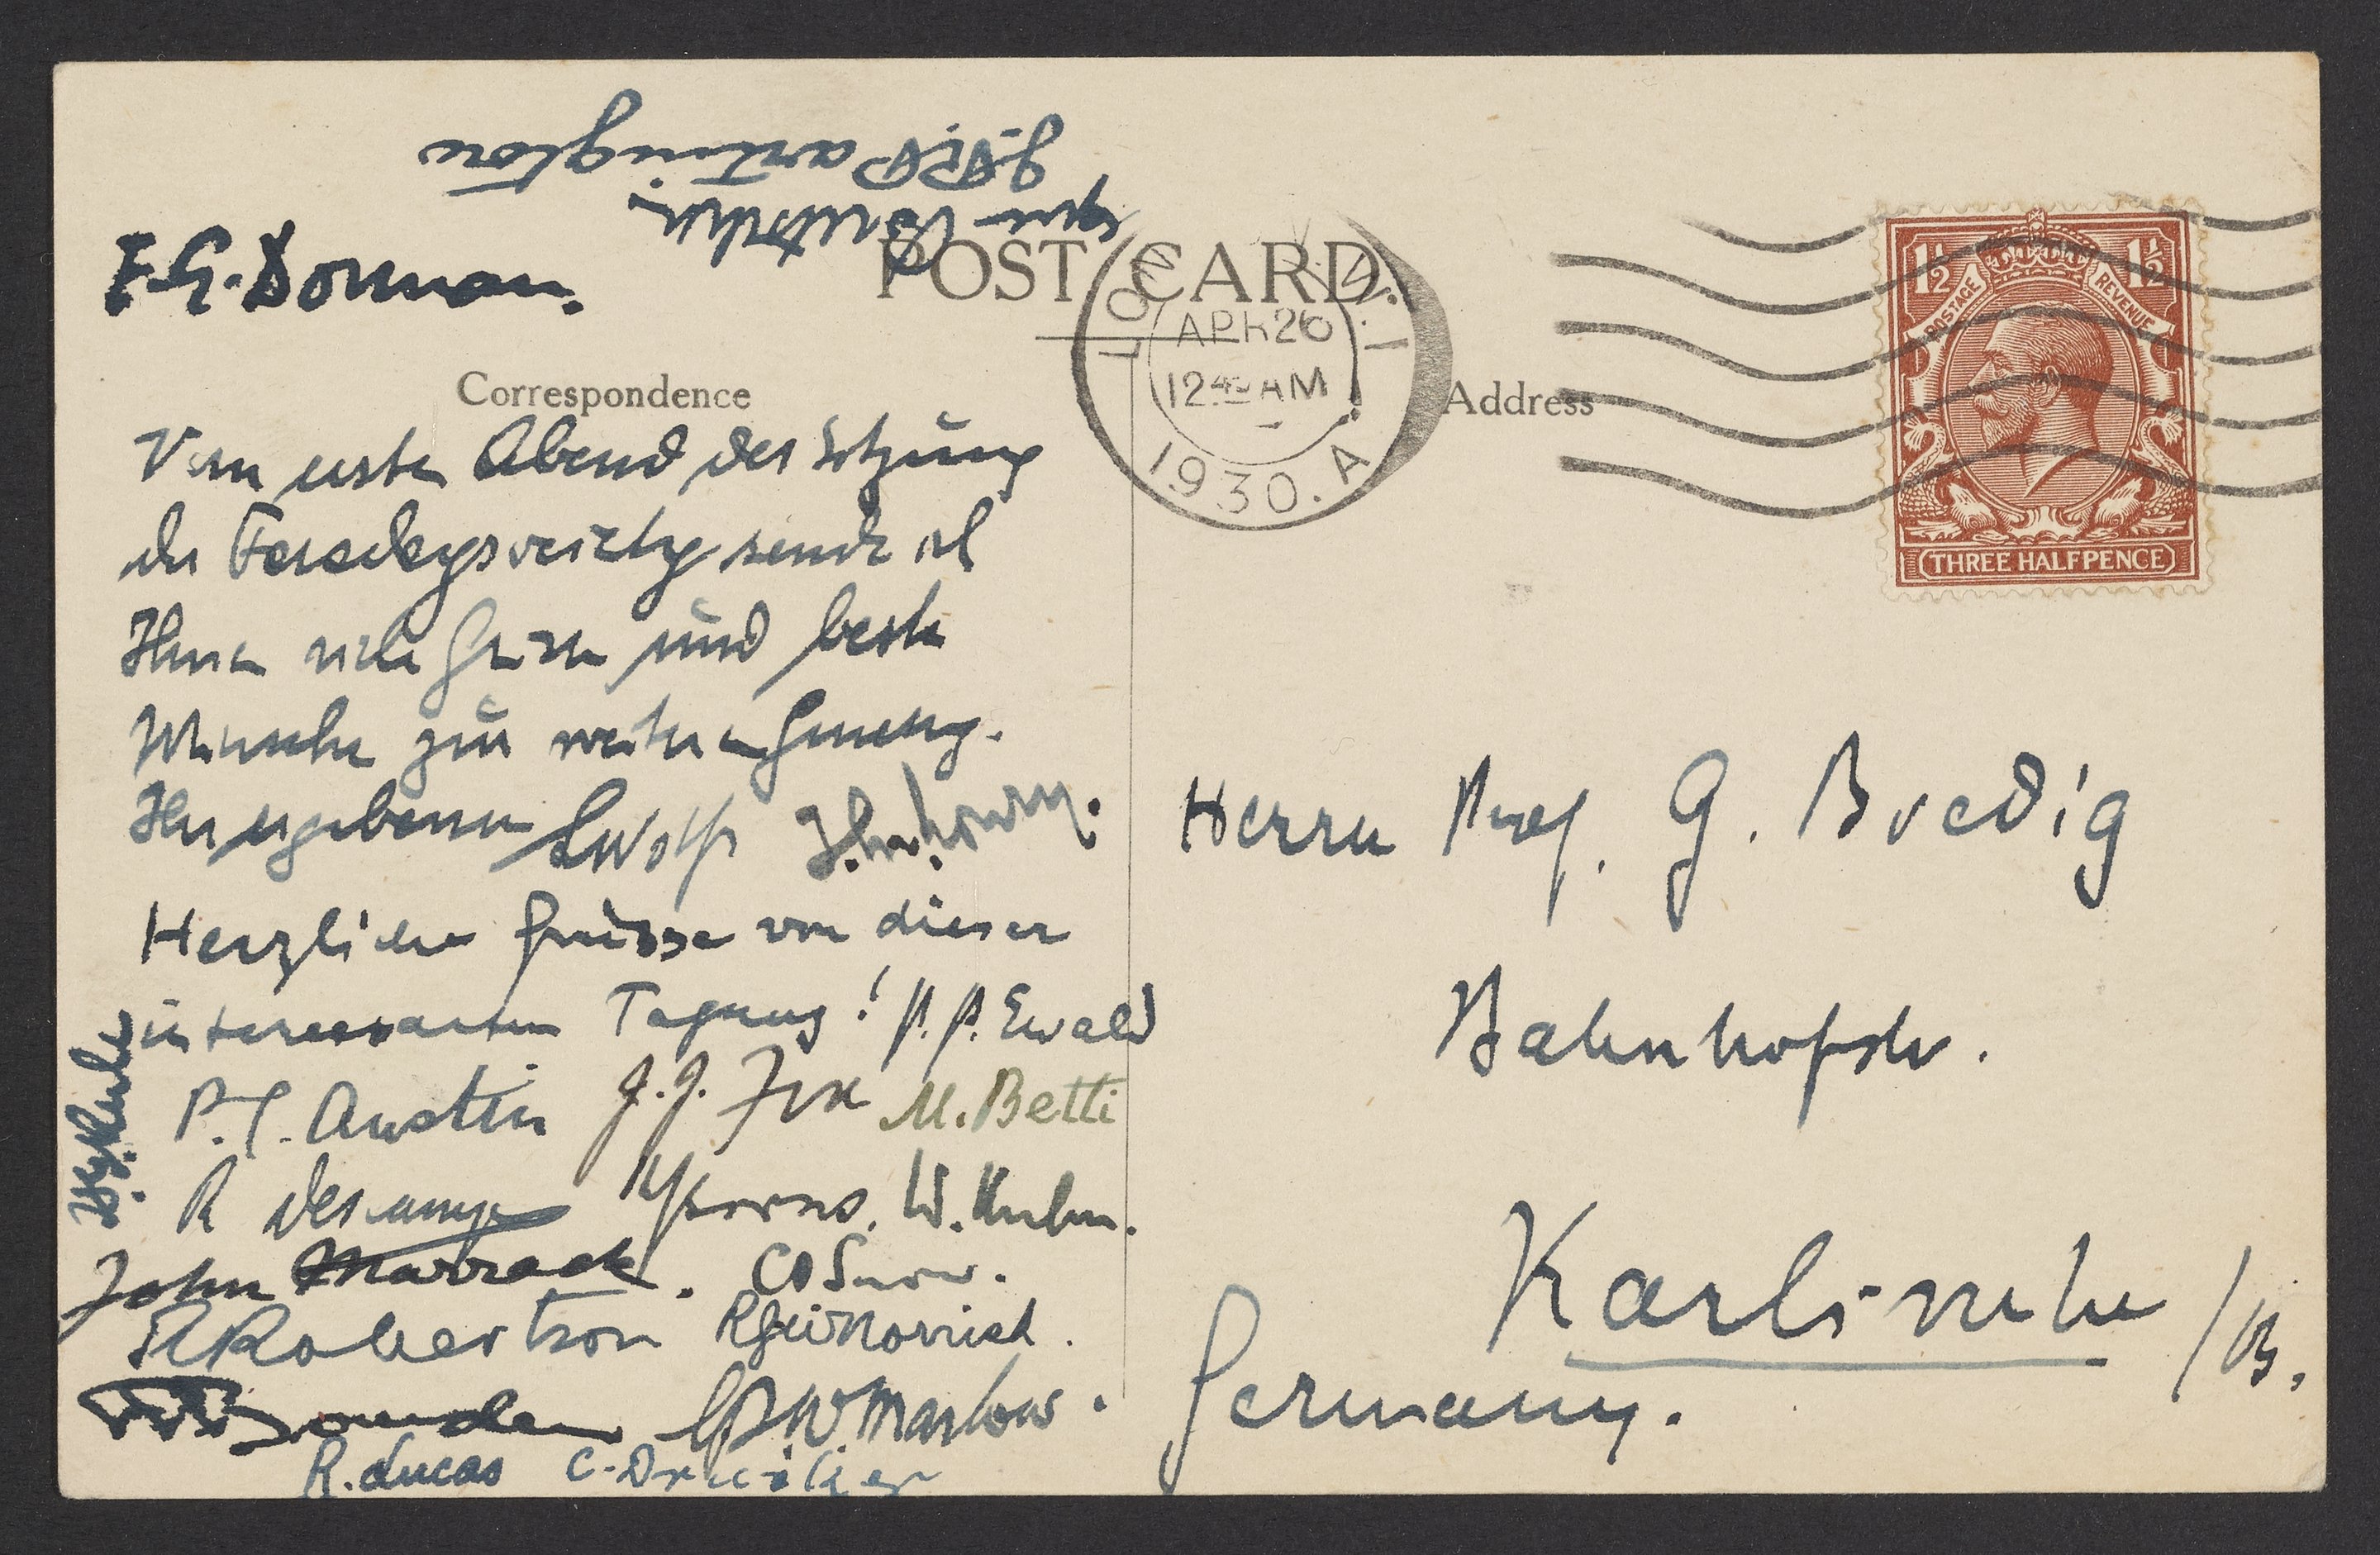 J. R. Partington
F. G. Dorman.
POST CARD.
LON W.1
APR 26
12.45 AM
1930. A
1½ 1½
POSTAGE REVENUE
THREE HALFPENCE
Correspondence
Address
Vom ersten Abend der Sitzung
der Faradaysociety sende ich
Ihnen viele Grüsse und beste
Wünsche zur weiteren Genesung.
Ihr ergebener
Herzliche Grüsse von dieser
interessanten Tagung! P. P. Ewald
P. C. Austin J. J. Fox M. Betti
R Descamps W. Kuhn.
John Marrack. CP Snow.
Robertson RGWNorrish.
Marlow.
R. Lucas
Herrn Prof. G. Bredig
Bahnhofstr.
Karlsruhe /B.
Germany.